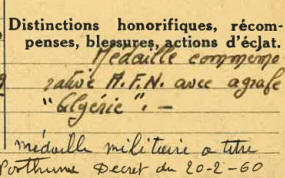 Distinctions honorifiques, récom-
penses, blessures, actions d'éclat.
Médaille commémo
rative A.F.N. avec agrafe
"Algérie". –
médaille militaire a titre
Posthume Decret du 20-2-60